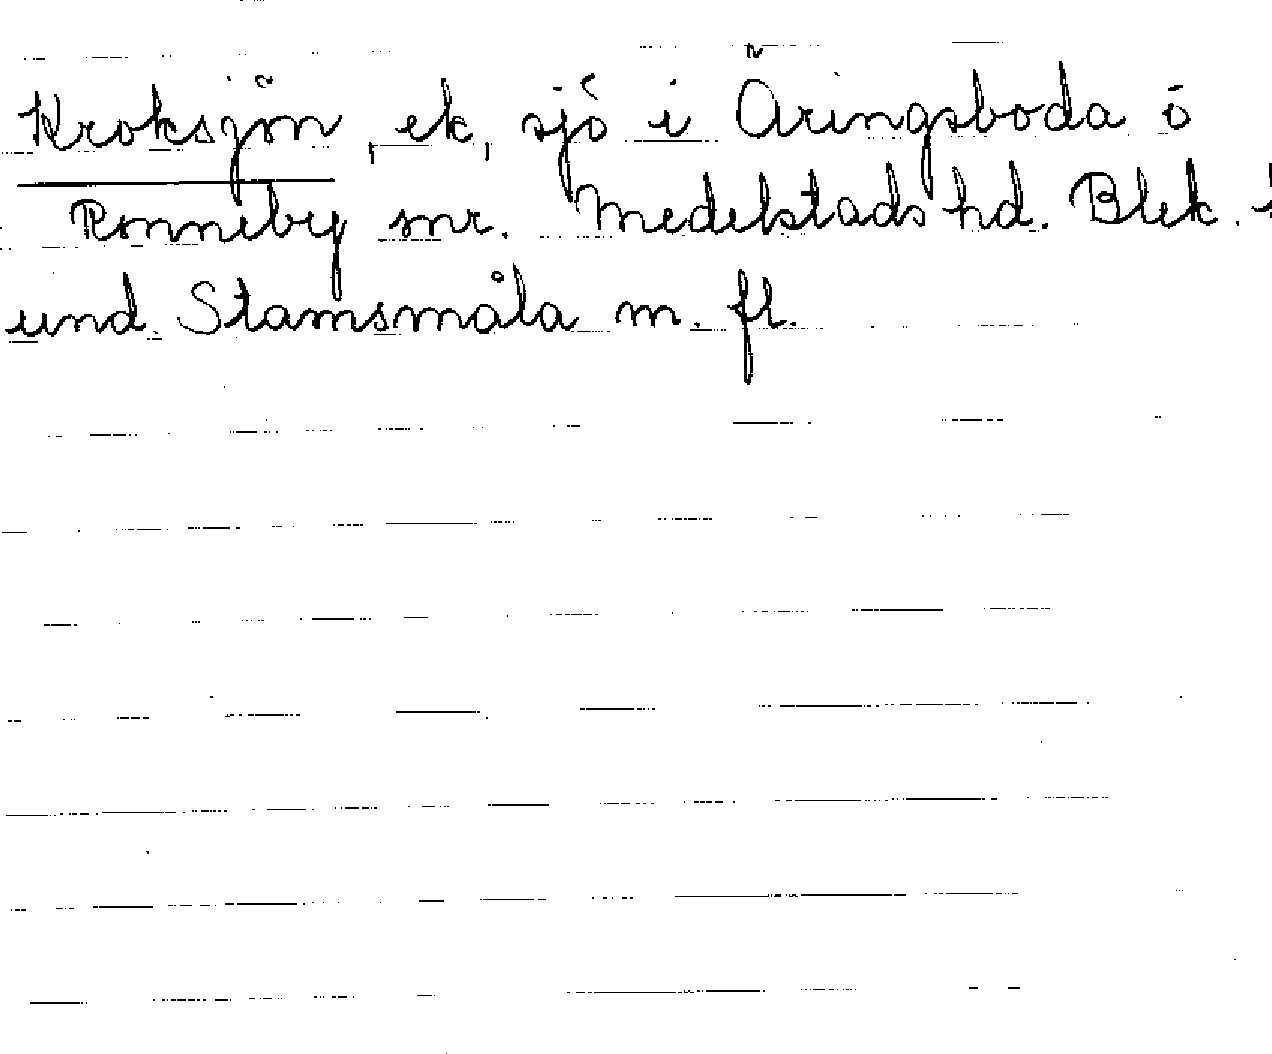 Kroksjön, ek, sjö i Äringsboda o
Ronneby snr. Medelstads hd. Blek.
und. Stamsmåla m. fl.